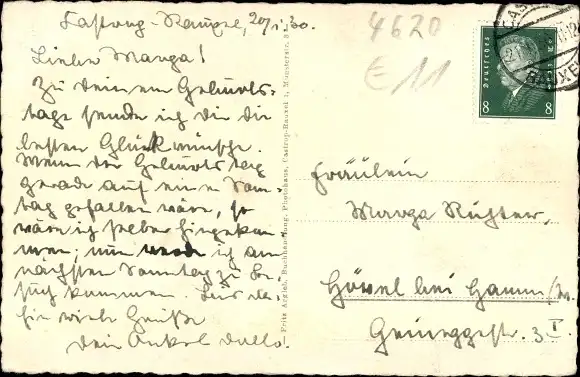 Castrop-Rauxel, 20/1.30.
Liebe Marga!
Zu deinem Geburts-
tage sende ich dir die
besten Glückwünsche.
Wenn der Geburtstag
gerade auf einen Sonn-
tag gefallen wäre, so
wäre ich selber hingekom-
men; nun werde ich am
nächsten Sonntag zu Be-
such kommen. Bis da-
hin viele Grüße
Dein Onkel
Fritz Buchhandlung, Photohaus, Castrop-Rauxel 1, Münsterstr.
4620
E 11
Deutsches Reich
8 8
Fräulein
Marga Richter,
Hövel bei Hamm/W.
3 I.